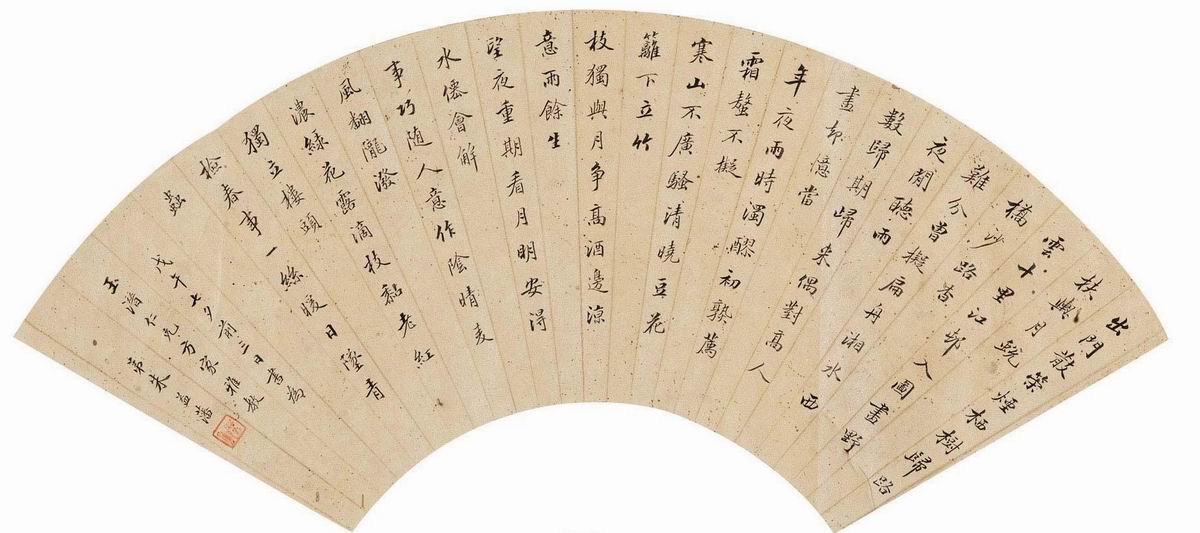 出門散策煙栖樹歸路
扶輿月蛻
雲十里江邨入圖畫野
橋沙路杳
難分曾擬扁舟湘水西
夜閒聽雨
數歸期歸來偶對高人
畫却憶當
年夜雨時濁醪初薦
霜螯不擬
寒山不廣騷清曉豆花
籬下立竹
枝獨與月爭高酒邊涼
意雨餘生
望夜重期看月明安得
水僊會解
事巧隨人意作陰晴麦
風翻隴潑
濃綠花露滴枝黏老紅
獨立樓頭
檢春事一絲暖日墜青
蟲
戊午七夕前三日書為
玉潛仁兄方家雅教
弟朱益藩